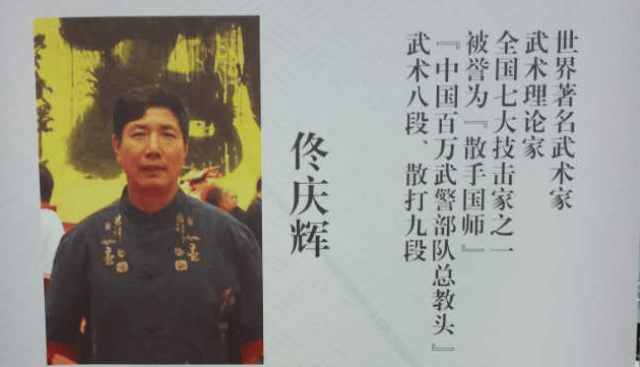 世界著名武术家
武术理论家
全国七大技击家之一
被誉为『散手国师』
『中国百万武警部队总教头』
武术八段、散打九段
佟庆辉